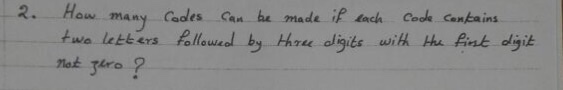 2. How many Codes Can be made if each Code Contains
two letters followed by three digits with the first digit
not zero?